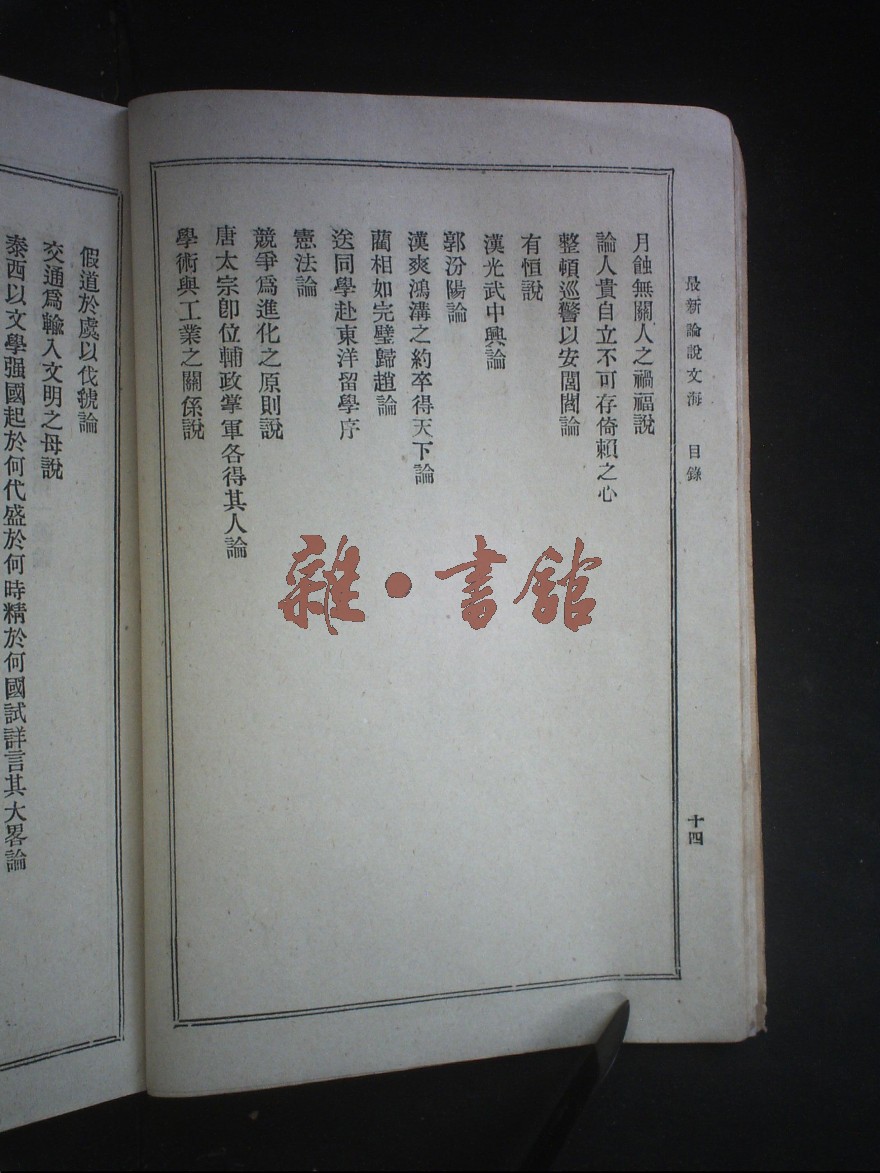 最新論說文海 目錄
十四
月蝕無關人之禍福說
論人貴自立不可存倚賴之心
整頓巡警以安閭閻論
有恒說
漢光武中興論
郭汾陽論
漢爽鴻溝之約卒得天下論
藺相如完璧歸趙論
送同學赴東洋留學序
憲法論
競爭爲進化之原則說
唐太宗卽位輔政掌軍各得其人論
學術與工業之關係說
假道於虞以伐虢論
交通爲輸入文明之母說
泰西以文學强國起於何代盛於何時精於何國試詳言其大畧論
雜·書館